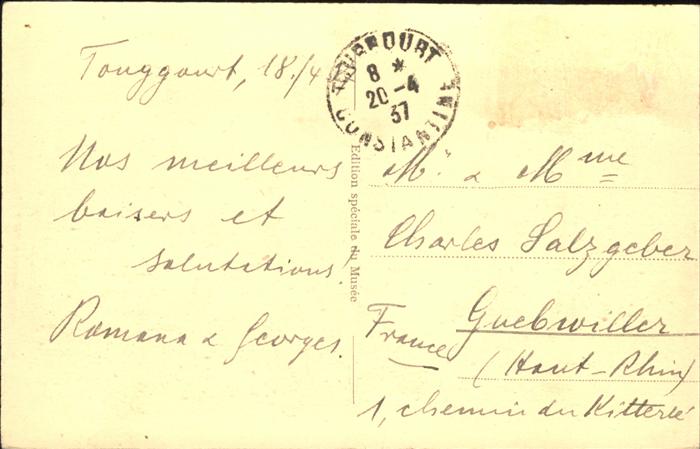 Touggourt, 18./4
TOUGGOURT
8 *
20 -4
37
CONSTANTINE
Nos meilleurs
baisers et
salutations.
Romana & Georges.
Edition spéciale du Musée
M. & Mme
Charles Salzgeber
Guebwiller
France
(Haut-Rhin)
1, chemin du Kitterlé